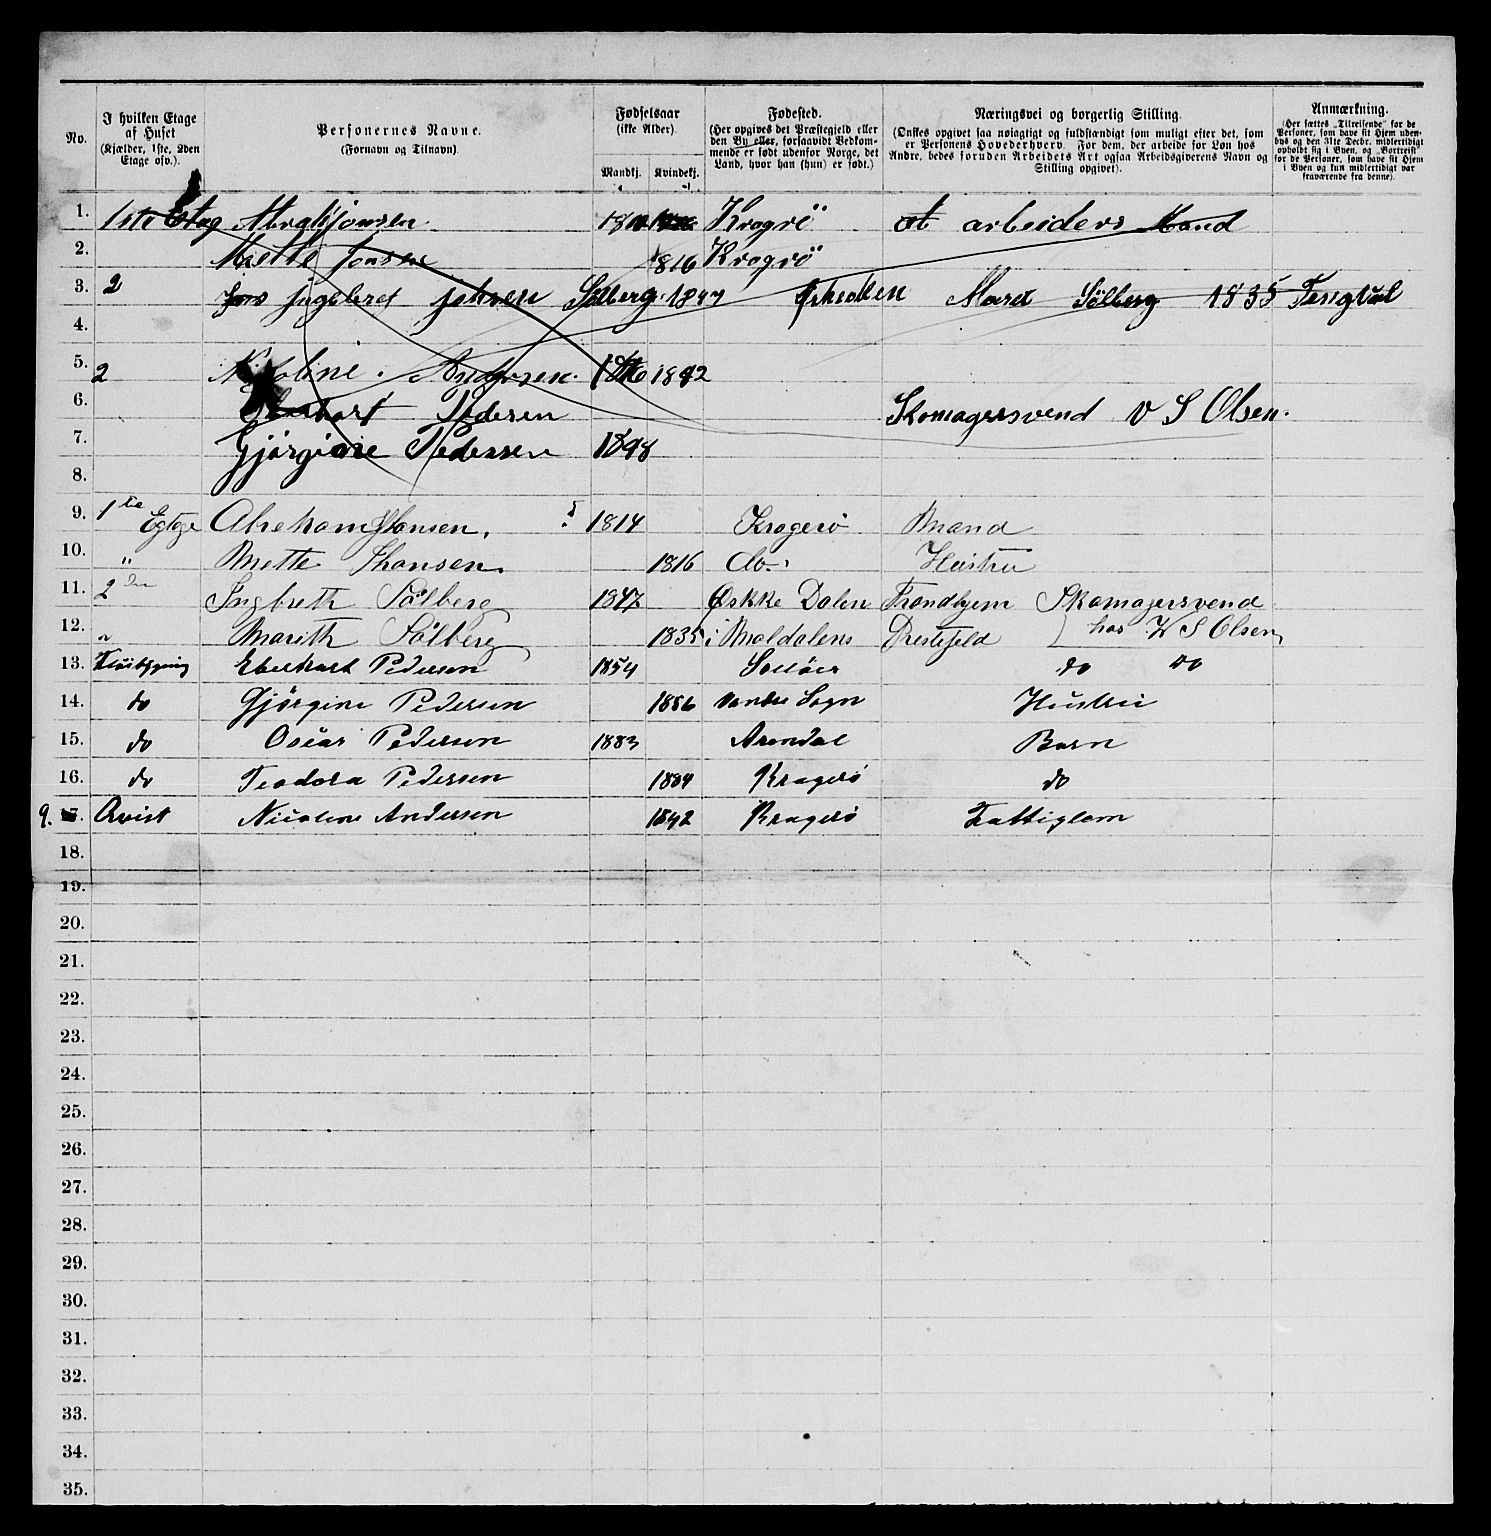 No.
I hvilken Etage af Huset (Kjælder, 1ste, 2den Etage osv.).
Personernes Navne. (Fornavn og Tilnavn).
Fødselsaar (ikke Alder).
Mandkj. Kvindekj.
Fødested. (Her opgives det Præstegjeld eller den By eller, forsaavidt Vedkommende er født udenfor Norge, det Land, hvor han (hun) er født.)
Næringsvei og borgerlig Stilling. (Ønskes opgivet saa nøiagtigt og fuldstændigt som muligt efter det, som er Personens Hovederhverv. For dem, der arbeide for Løn hos Andre, bedes foruden Arbeidets Art ogsaa Arbeidsgiverens Navn og Stilling opgivet).
Anmærkning. (Her sættes „Tilreisende“ for de Personer, som have sit Hjem udenbys og den 31te Decbr. midlertidigt opholdt sig i Byen, og „Bortreist“ for de Personer, som have sit Hjem i Byen og kun midlertidigt var fraværende fra denne).
1. 1ste Etag Kragrö arbeiders Mand
2. Mette Jonsen 1816 Kragrö
3. 2 Jngebret Johsen Sölberg 1847 Maret Sölberg 1835
4.
5. 2 Nikoline Andersen 1842
6. Pedersen Skomagersvend v S Olsen.
7. Gjörgine Pedersen 1898
8.
9. 1ste Etage Abraham Hansen, 1814 Kragerö Mand
10. " Mette Hansen. 1816 do. Hustru
11. 2den Ingbreth Sölberg 1847 Ørkke Dalen Trondhjem Skomagersvend
12. " Marith Sölberg 1835 i Maldalens Prestejeld hos W S Olsen
13. Eberhart Pedersen 1854 do do
14. do Gjörgine Pedersen 1856 Sogn Hustru
15. do Oscar Pedersen 1883 Arendal Barn
16. do Teodora Pedersen 1884 Kragerö do
9. 17. Qvist Nicoline Andersen 1842 Kragerö Fattiglem
18.
19.
20.
21.
22.
23.
24.
25.
26.
27.
28.
29.
30.
31.
32.
33.
34.
35.